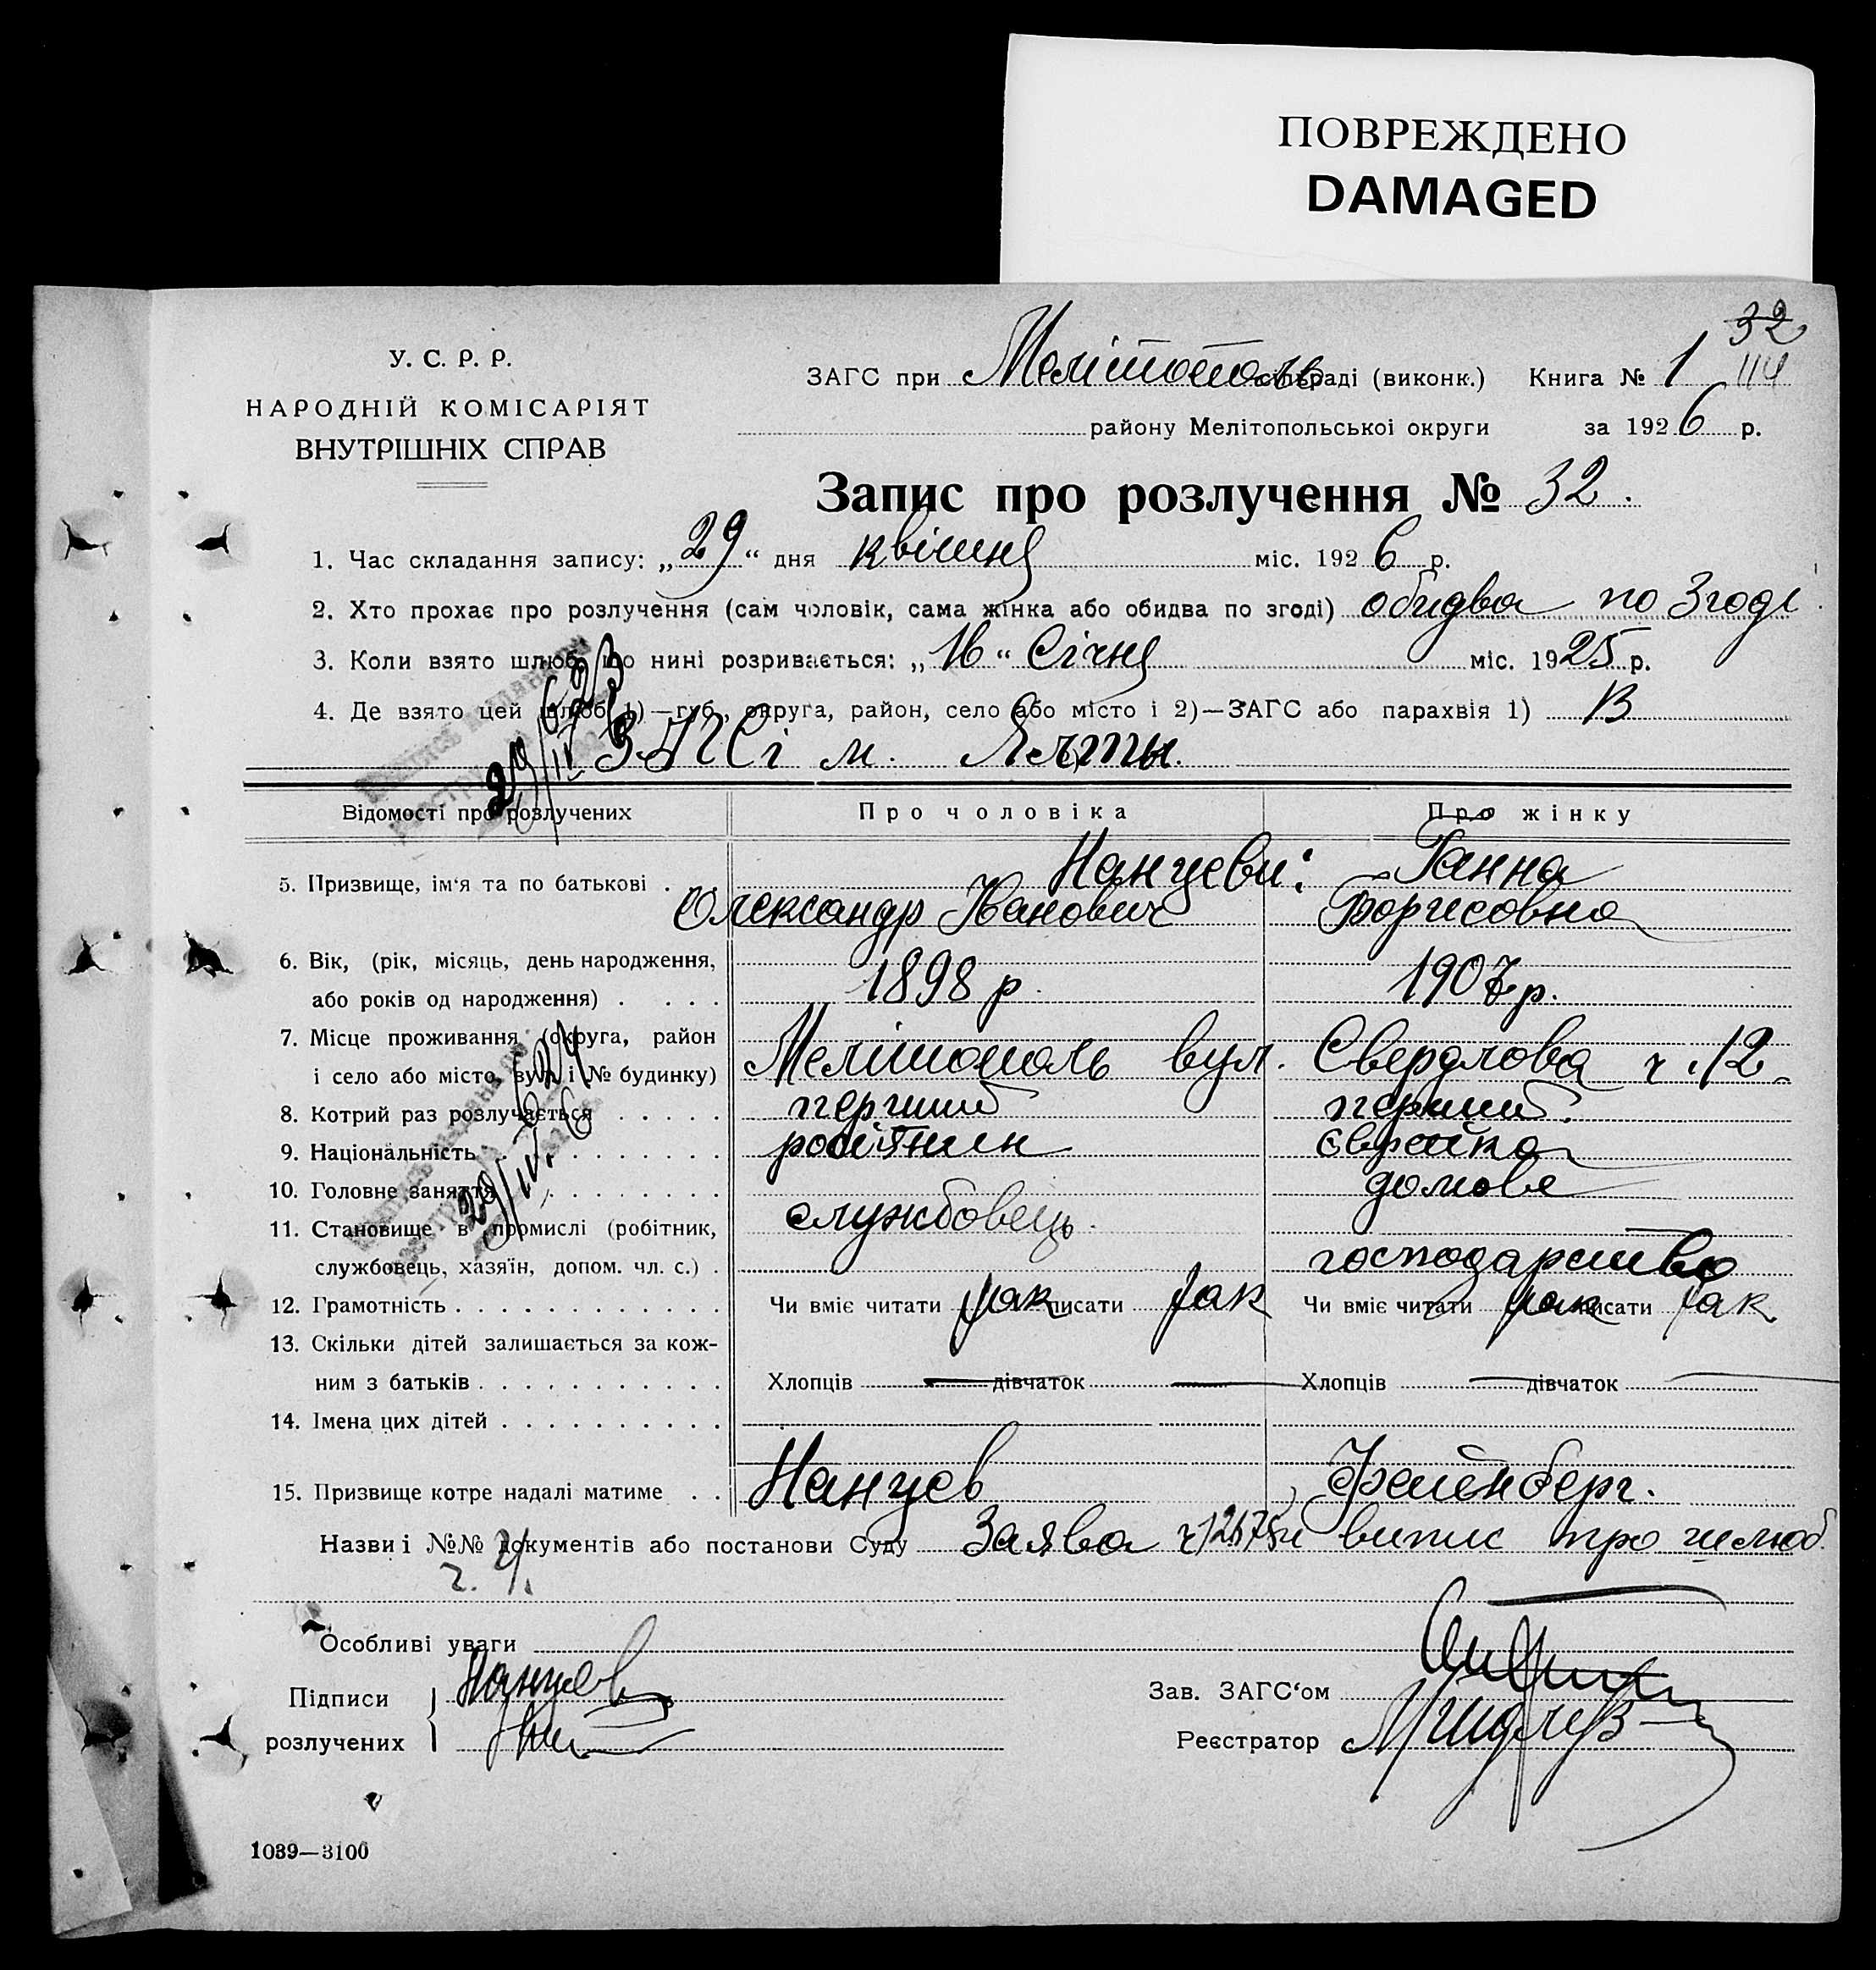 ПОВРЕЖДЕНО
DAMAGED
32
У. С. Р. Р.
НАРОДНІЙ КОМІСАРІЯТ
ВНУТРІШНІХ СПРАВ
ЗАГС при Мелітополь сільраді (виконк.) Книга № 1 114
району Мелітопольскоі округи за 1926 р.
Запис про розлучення № 32.
1. Час складання запису: „29“ дня квітня міс. 1926 р.
2. Хто прохає про розлучення (сам чоловік, сама жінка або обидва по згоді) обидва по згоді.
3. Коли взято шлюб, що нині розривається: „16“ Січня міс. 1925 р.
4. Де взято цей шлюб 1)—губ., округа, район, село або місто і 2)—ЗАГС або парахвія 1) В
ЗАГСі м. Ялты.
Відомості про розлучених Про чоловіка Про жінку
5. Призвище, ім‘я та по батькові . . Нанцеви: Ганна
Олександр Іванович Борисовна
6. Вік, (рік, місяць, день народження,
або років од народження) . . . . . 1898 р. 1907 р.
7. Місце проживання (округа, район
і село або місто, вул. і № будинку) Мелітополь вул. Свердлова ч. 12
8. Котрий раз розлучається . . . . . перший перший.
9. Національність . . . . . . . . . . росіянин єврейка
10. Головне заняття . . . . . . . . . домове
11. Становище в промислі (робітник, службовець.
службовець, хазяїн, допом. чл. с.) . господарство
12. Грамотність . . . . . . . . . . . . Чи вміє читати так писати так Чи вміє читати так писати так
13. Скільки дітей залишається за кож-
ним з батьків . . . . . . . . . . . Хлопців — дівчаток — Хлопців — дівчаток —
14. Імена цих дітей . . . . . . . . . .
15. Призвище котре надалі матиме . . Нанцев Файнберг.
Назви і №№ документів або постанови Суду Заява ч. випис про шлюб.
ч. 4.
Особливі уваги
Підписи Нанцев
розлучених
Зав. ЗАГС‘ом
Реєстратор
1039—3100